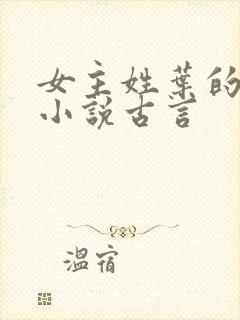 女主姓葉的
小說古言
溫宿